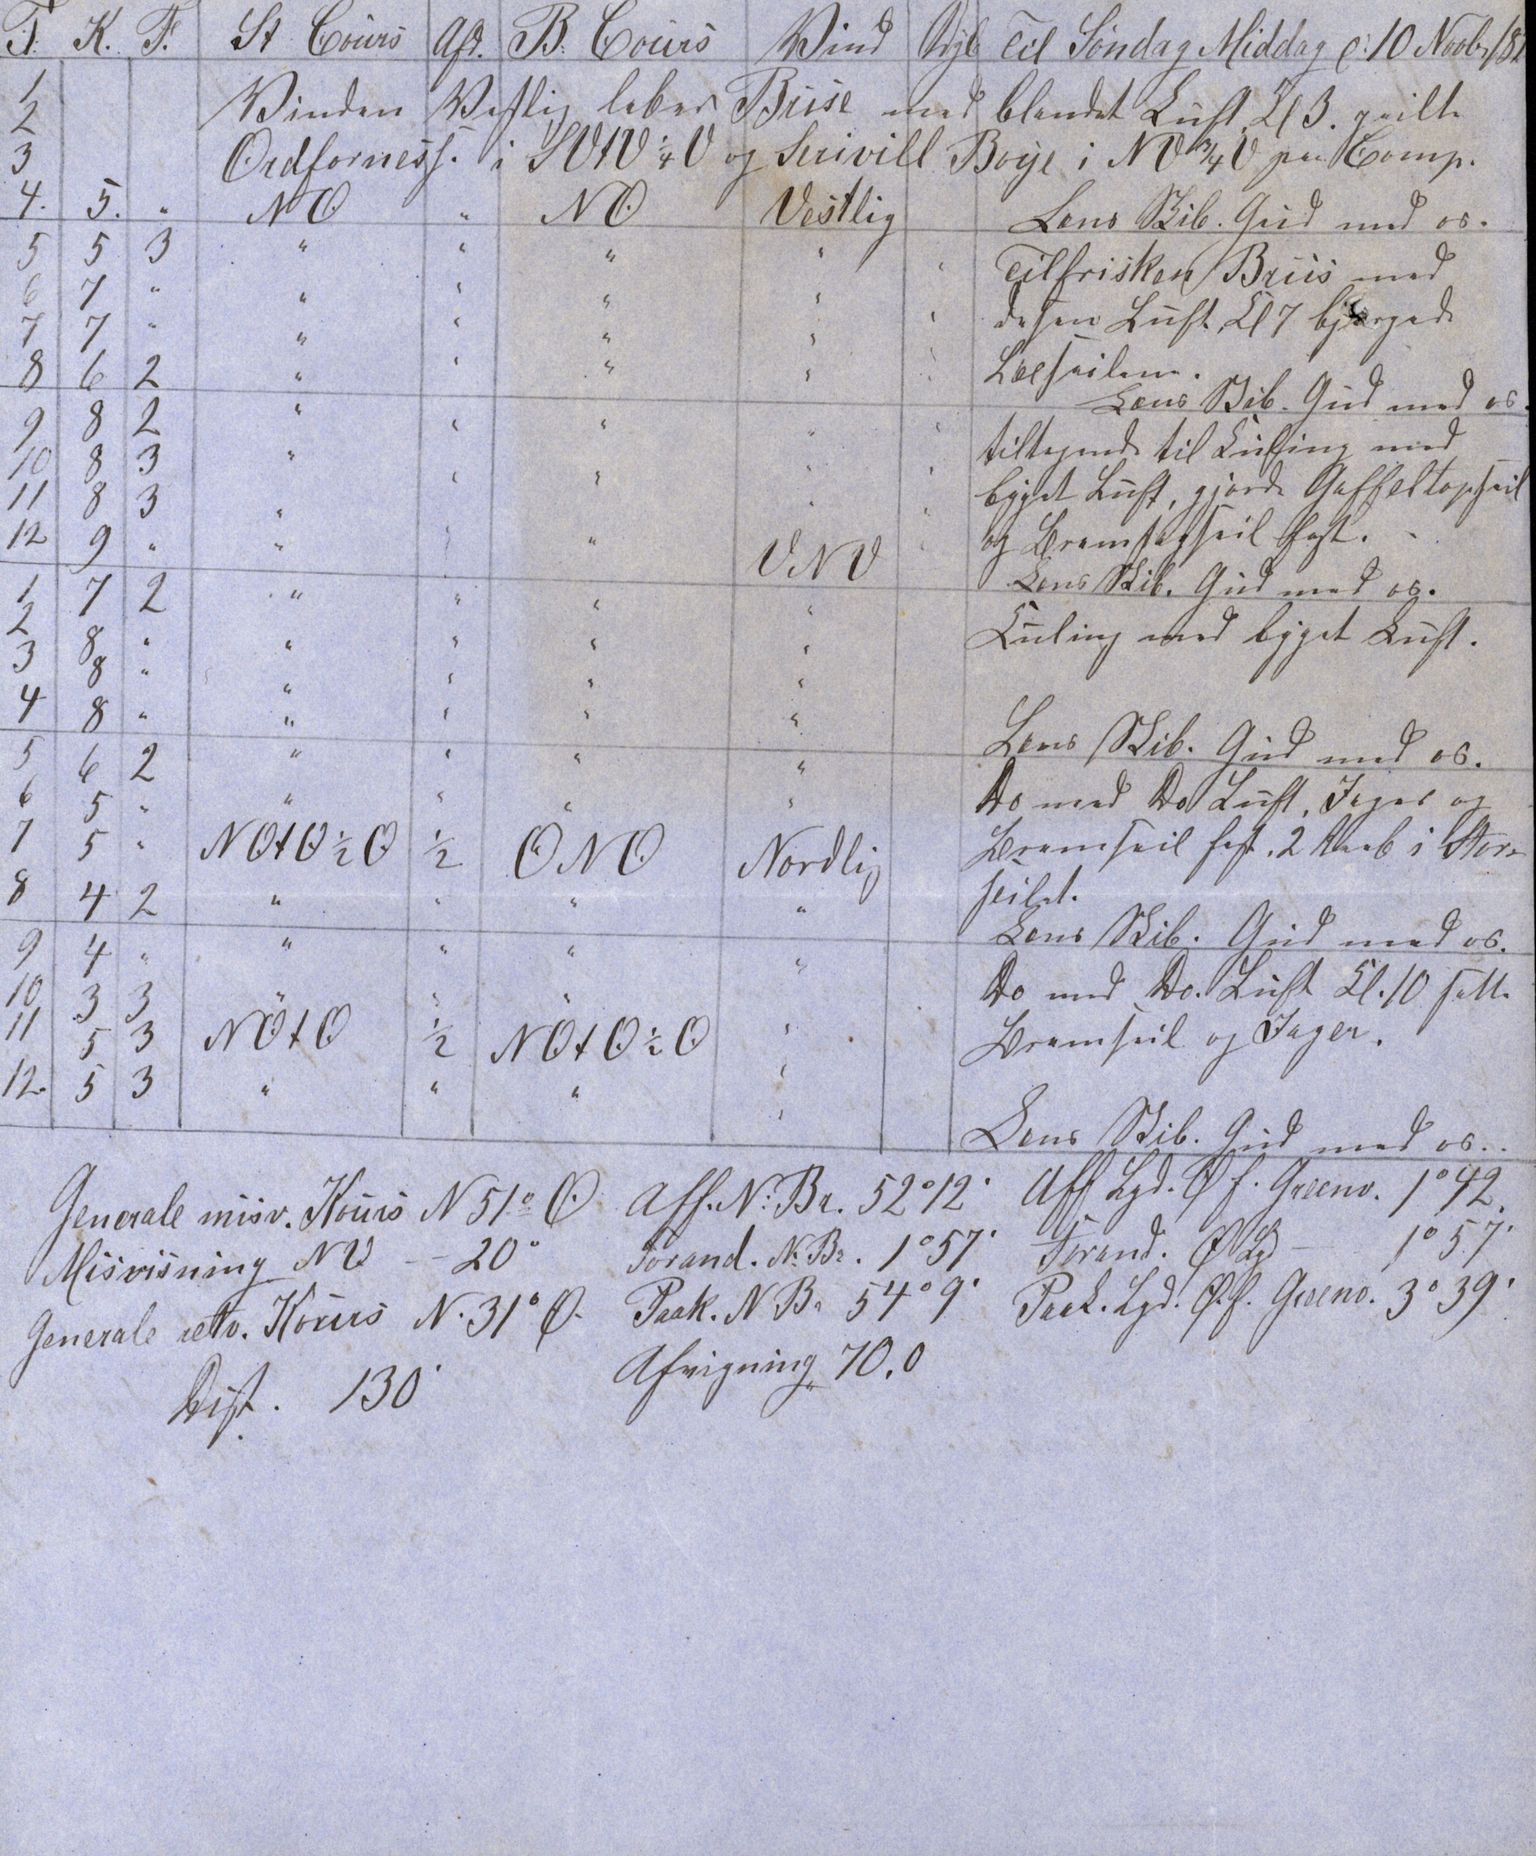 T. K. F. St Cours Afd. B. Cours Vind Til Söndag Middag d: 10 Novbr
1 Vinden Vestlig laber Brise med blandet Luft, Kl 3. peilte
2
3 Ordforness. i SVtV ¼ V og Scrivill Boye i NV ¾ V pr. Comp.
4. 5. " NO " NO Vestlig Lens Skib. Gud med os.
5 5 3 " " " " " Tilfrisken Briis med
6 7 " " " " " " disen Luft, Kl 7 bjergede
7 7 " " " " " "
8 6 2 " " " " " Læseilene.
Lens Skib. Gud med os.
9 8 2 " " " " " tiltagende til Kuling med
10 8 3 " " " " " byget Luft, gjorde Gaffeltopseil
11 8 3 " " " " "
12 9 " " " " VNV " og Bramstagseil fast. -
Lens Skib. Gud med os.
1 7 2 " " " "
2 8 " " " " " Kuling med byget Luft.
3 8 " " " " "
4 8 " " " " " Lens Skib. Gud med os.
5 6 2 " " " " Do med Do Luft, Jager og
6 5 " " " " "
7 5 " NOtO ½ O ½ ONO Nordlig Bramseil fast. 2 Reeb i Store
8 4 2 " " " " seilet.
Lens Skib. Gud med os.
9 4 " " " " " Do med Do. Luft Kl. 10 satte
10 3 3 " " "
11 5 3 NOtO ½ NOtO ½ O " Bramseil og Jager.
12. 5 3 " " " "
" Lens Skib. Gud med os..
Generale misv. Kours N 51° O. Aff. N. Br. 52°12' Aff Lgd. Ø f. Greenv. 1°42.
Misvisning NV - 20° Forand. N. Br. 1°57' Forand. Ø Lg - 1°57'
Generale retv. Kours N. 31° O. Paak. N Br 54°9' Paak. Lgd. Ø. f. Greenv. 3°39'
Dist. 130' Afvigning 70.0